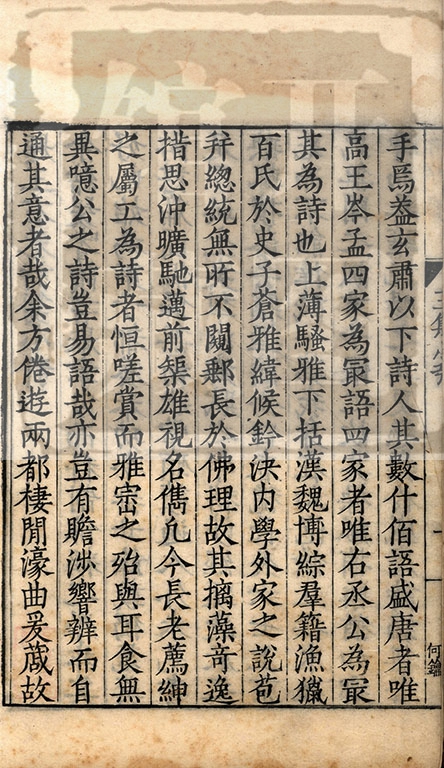 手焉葢玄肅以下詩人其數什佰語盛唐者唯
高王岑孟四家為冣語四家者唯右丞公為冣
其為詩也上薄騷雅下括漢魏博綜羣籍漁獵
百氏於史子蒼雅緯候鈐决内學外家之說苞
并總統無所不闚郵長於佛理故其摛藻奇逸
措思沖曠馳邁前榘雄視名儁凢今長老薦紳
之屬工為詩者恒嗟賞而雅宻之殆與耳食無
異噫公之詩豈易語哉亦豈有贍涉響辨而自
通其意者哉余方倦遊兩都棲閒濠曲爰蕆故
一
何